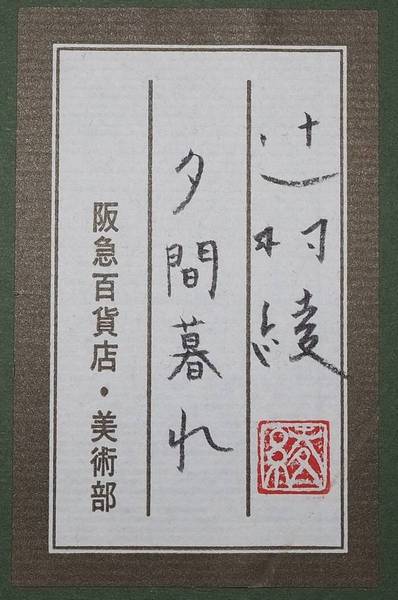 辻村綾
綾
夕間暮れ
阪急百貨店・美術部